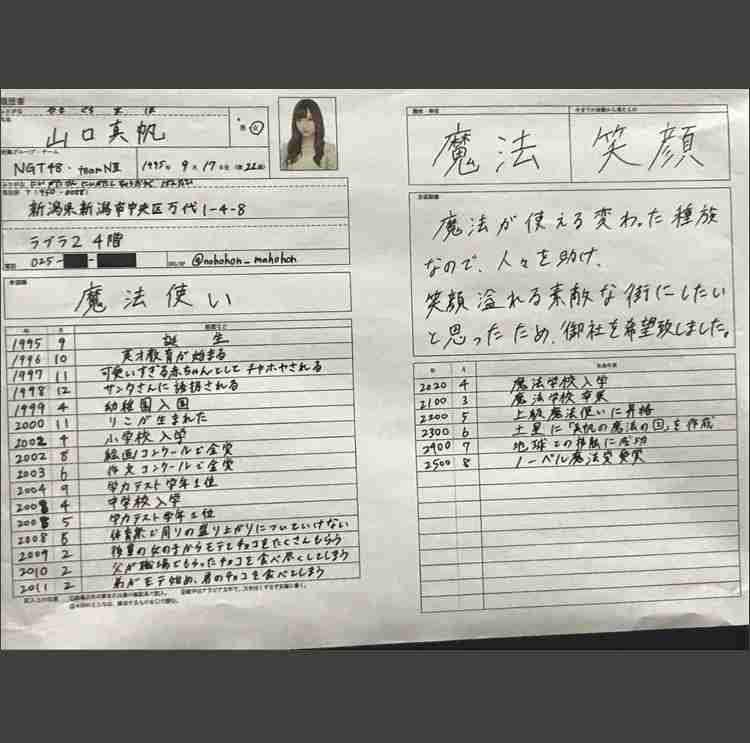 履歴書
ふりがな やま ぐち ま ほ
氏名
山口真帆
男 女
所属グループ・チーム
NGT48・teamNⅢ
1995年 9月 17日生
ふりがな
新潟県新潟市中央区万代1-4-8
ラブラ2 4階
電話 025-
@nohohon_mahohon
魔法使い
年 月
1995 9 誕生
1996 10 英才教育が始まる
1997 11 可愛いすぎる赤ちゃんとしてチヤホヤされる
1998 12 サンタさんに誘拐される
1999 4 幼稚園入園
2000 11 りこが生まれた
2002 4 小学校入学
2002 8 絵画コンクールで金賞
2003 6 作文コンクールで金賞
2004 9 学力テスト学年1位
2008 4 中学校入学
2008 5 学力テスト学年1位
2008 8 体育祭で周りの盛り上がりについていけない
2009 2 後輩の女の子からモテてチョコをたくさんもらう
2010 2 父が職場でもらったチョコを食べ尽くしてしまう
2011 2 弟がモテ始め、君のチョコを食べてしまう
魔法
笑顔
魔法が使える変わった種族
なので、人々を助け、
笑顔溢れる素敵な街にしたい
と思ったため、御社を希望致しました。
年 月
2020 4 魔法学校入学
2100 3 魔法学校卒業
2200 5 上級魔法使いに昇格
2300 6 土星に「真帆の魔法の国」を作成
2400 7 地球との移転に成功
2500 8 ノーベル魔法賞受賞